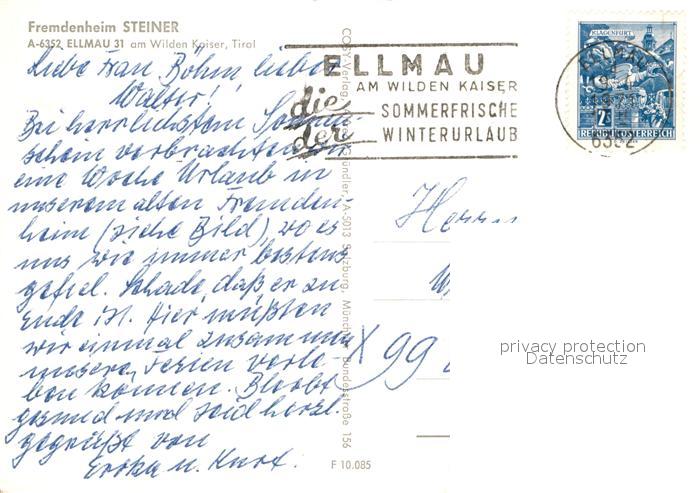 Fremdenheim STEINER
A-6352 ELLMAU 31 am Wilden Kaiser, Tirol
Liebe Frau Böhm, lieber
Walter!
Bei herrlichstem Sonnen-
schein verbrachten wir
eine Woche Urlaub in
unserem alten Fremden-
heim (siehe Bild), wo es
uns wie immer bestens
gefiel. Schade, daß er zu
Ende ist. Hier müßten
wir einmal zusammen
unsere Ferien verle-
ben können. Bleibt
gesund und seid herzl.
gegrüßt von
Erika u. Kurt.
ELLMAU
AM WILDEN KAISER
die SOMMERFRISCHE
der WINTERURLAUB
KLAGENFURT
2S
REPUBLIK ÖSTERREICH
ELLMAU
6352
Herrn
W
99
privacy protection
Datenschutz
F 10.085